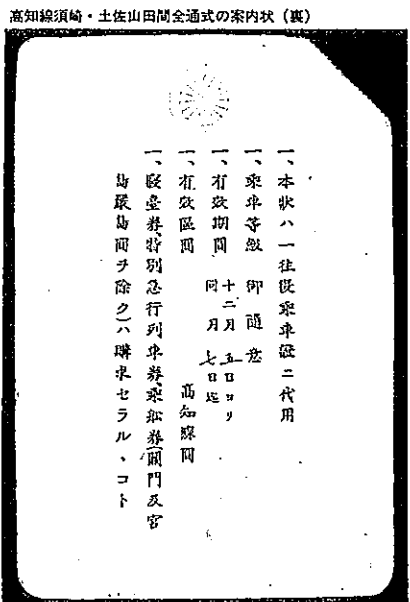 高知線須崎・土佐山田間全通式の案内状（裏）
一、本状ハ一往復乗車證ニ代用
一、乗車等級　御随意
一、有效期間　十二月五日ヨリ
同月七日迄
一、有效区間　高知線間
一、寝臺券、特別急行列車券、乘船券（関門及宮
島嚴島間ヲ除ク）ハ購求セラルヽコト